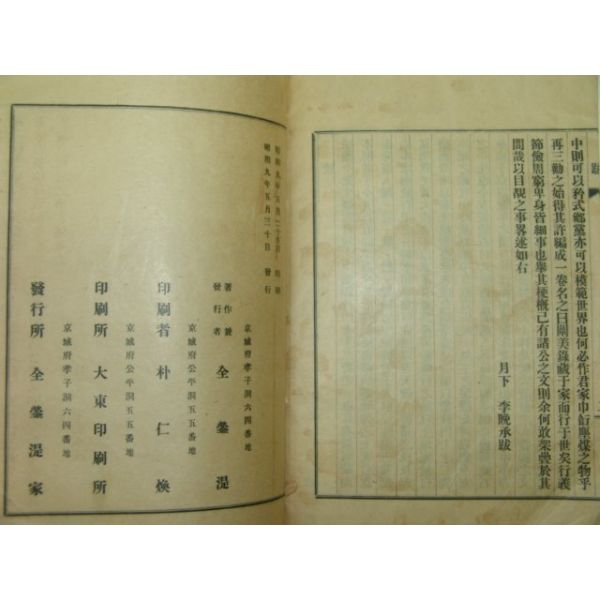 跋
中則可以矜式鄕黨亦可以模範世界也何必作君家巾衍塵煤之物乎
再三勸之始得其許編成一卷名之曰闡美錄藏于家而行于世矣行義
節儉周窮卑身皆細事也擧其梗槪已有諸公之文則余何敢架疊於其
間哉以目覩之事畧述如右
月下 李晩承跋
昭和九年五月二十
昭和九年五月三十日 發行
京城府孝子洞六四番地
著作兼
發行者 全 鎏 湜
京城府公平洞五五番地
印刷者 朴 仁 煥
京城府公平洞五五番地
印刷所 大東印刷所
京城府孝子洞六四番地
發行所 全 鎏 湜 家